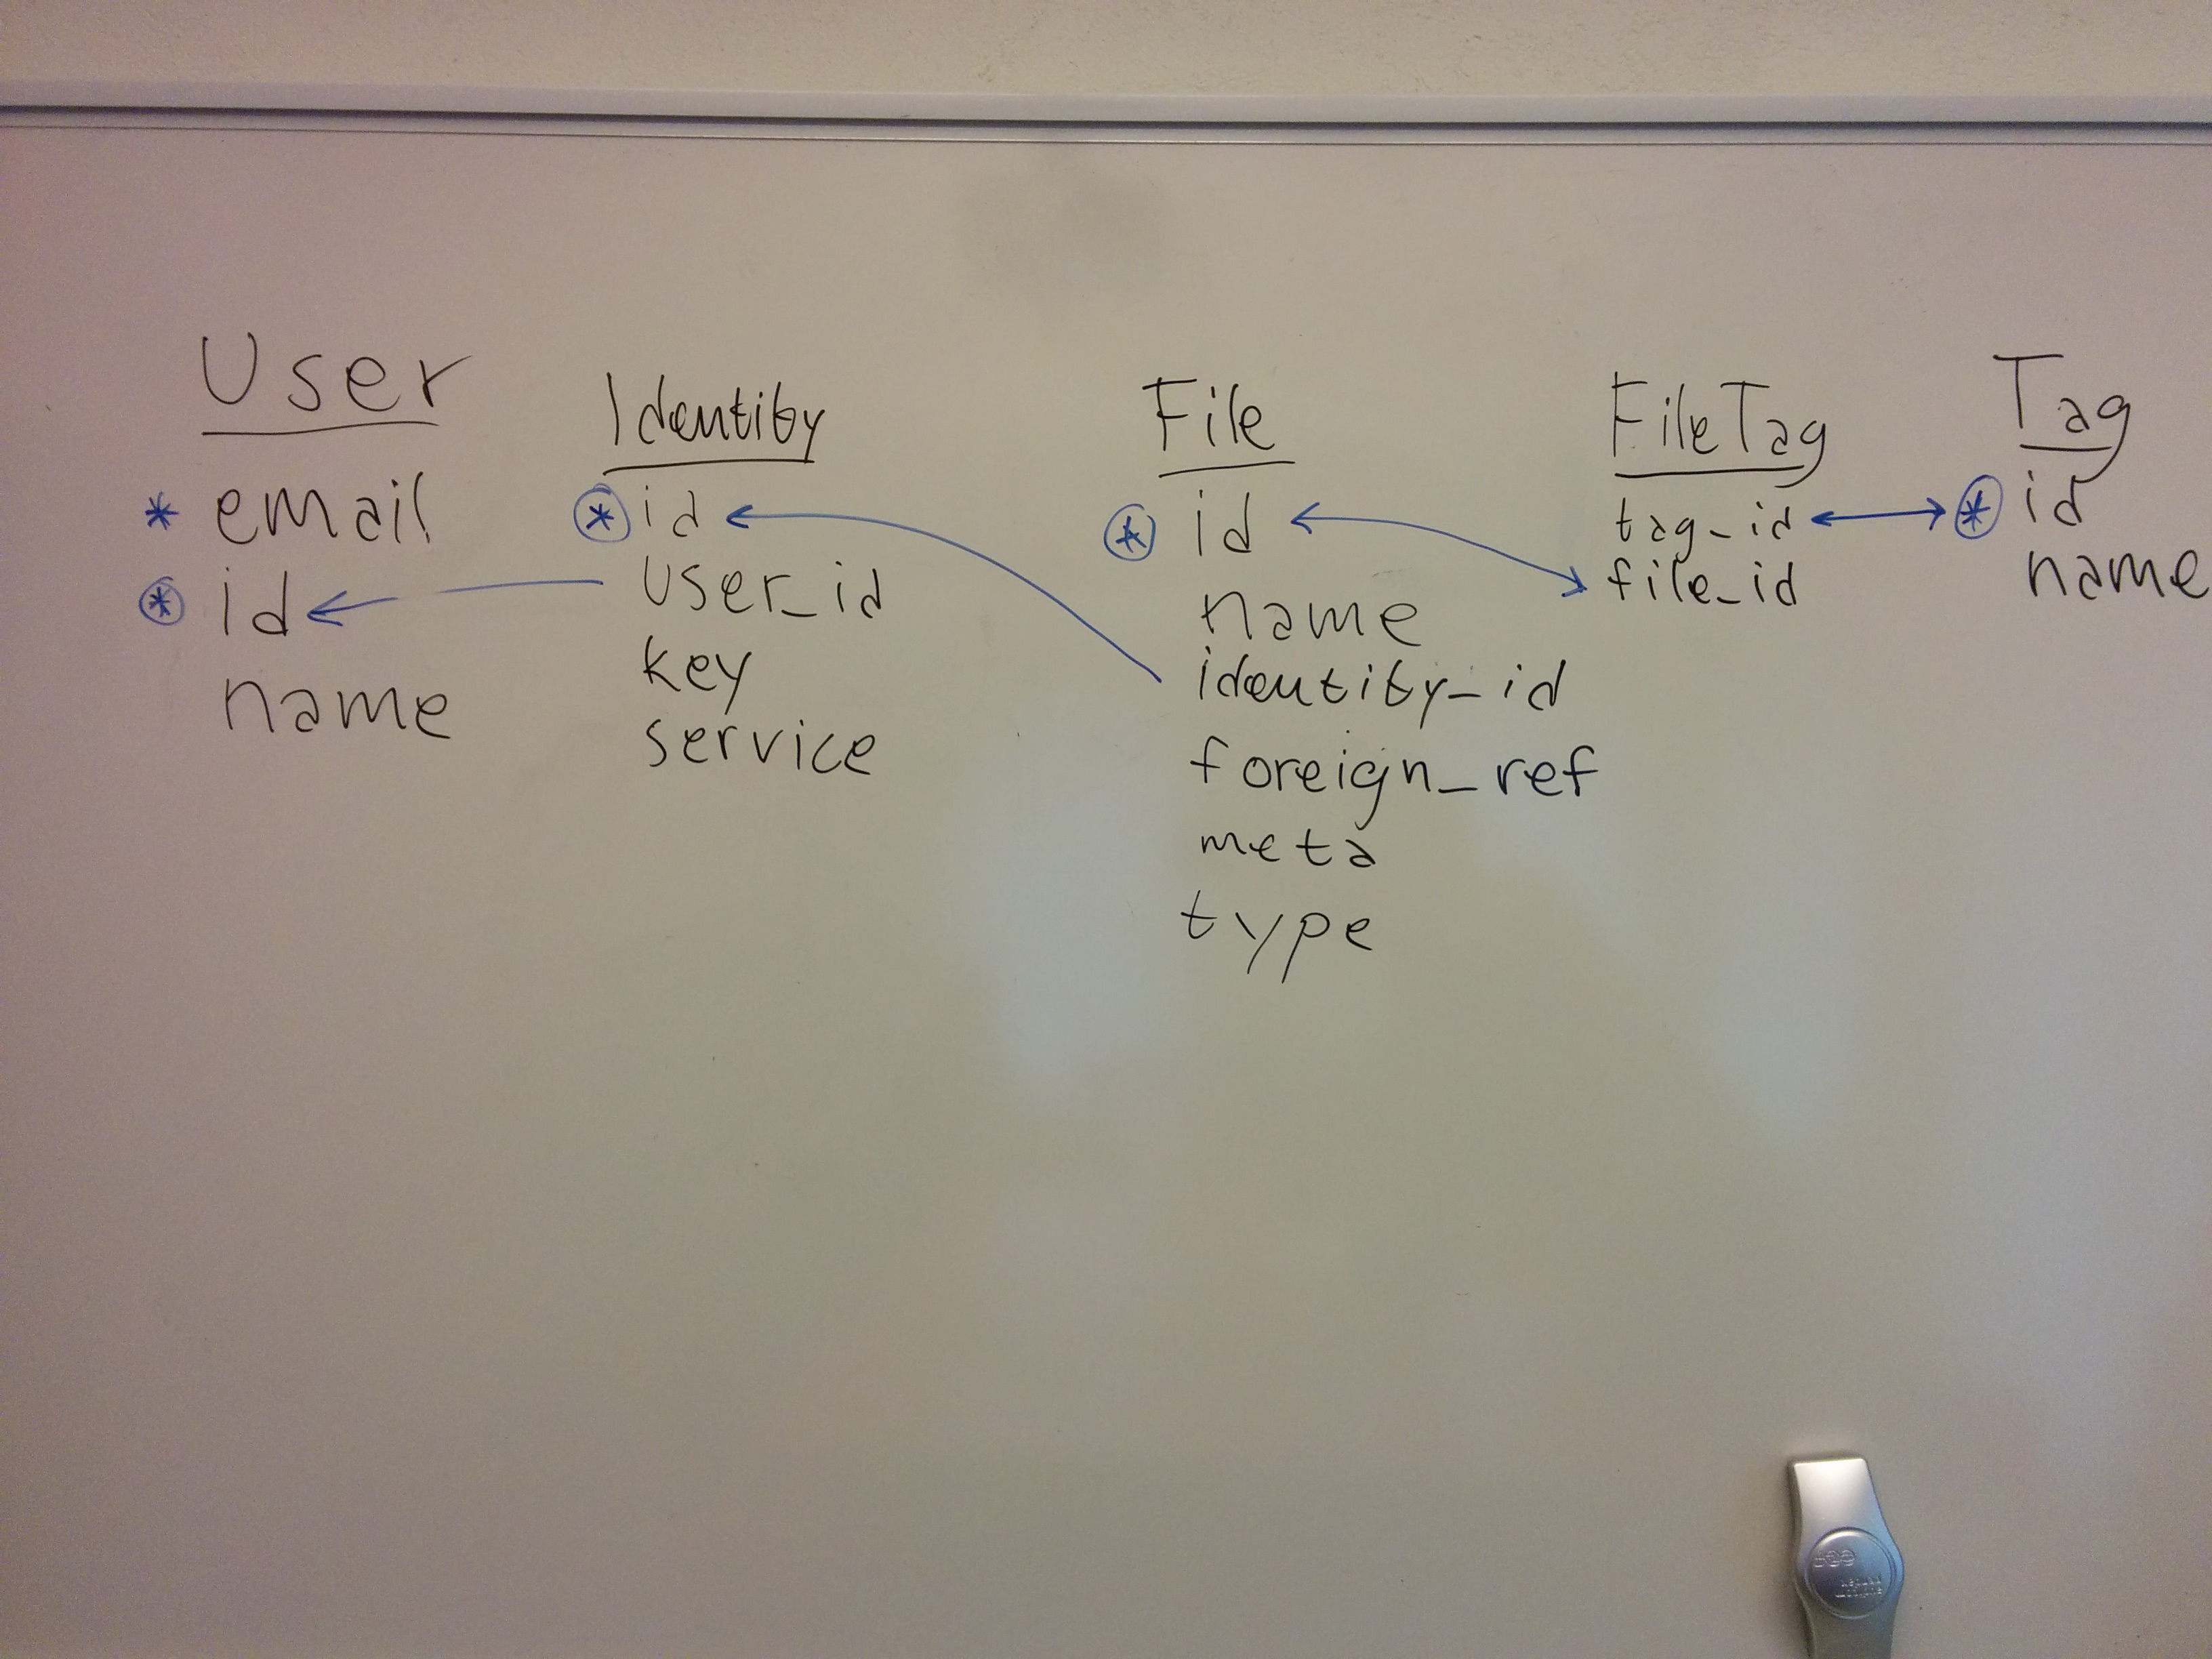 User
* email
* id
name
Identity
* id
user_id
key
service
File
* id
name
identity_id
foreign_ref
meta
type
FileTag
tag_id
file_id
Tag
* id
name